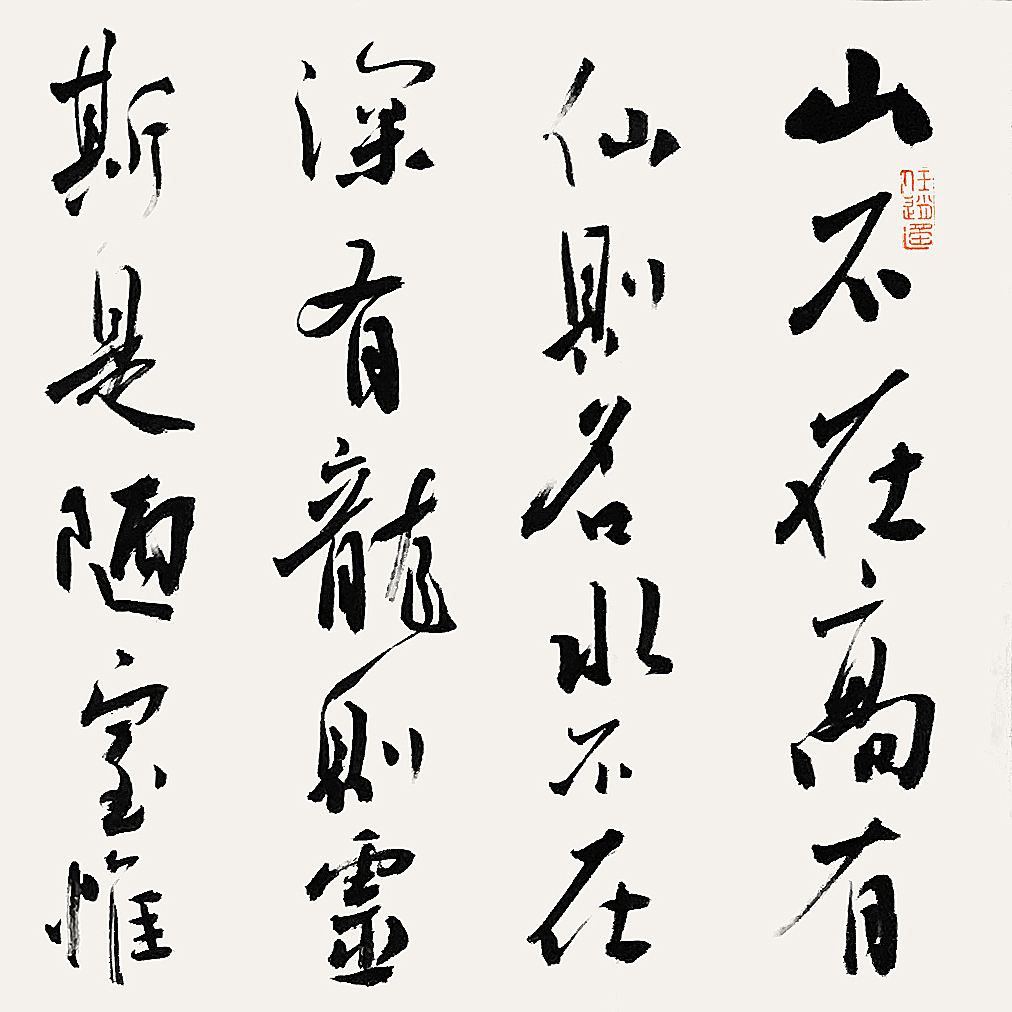 山不在高有
仙則名水不在
深有龍則靈
斯是陋室惟
任逍遙